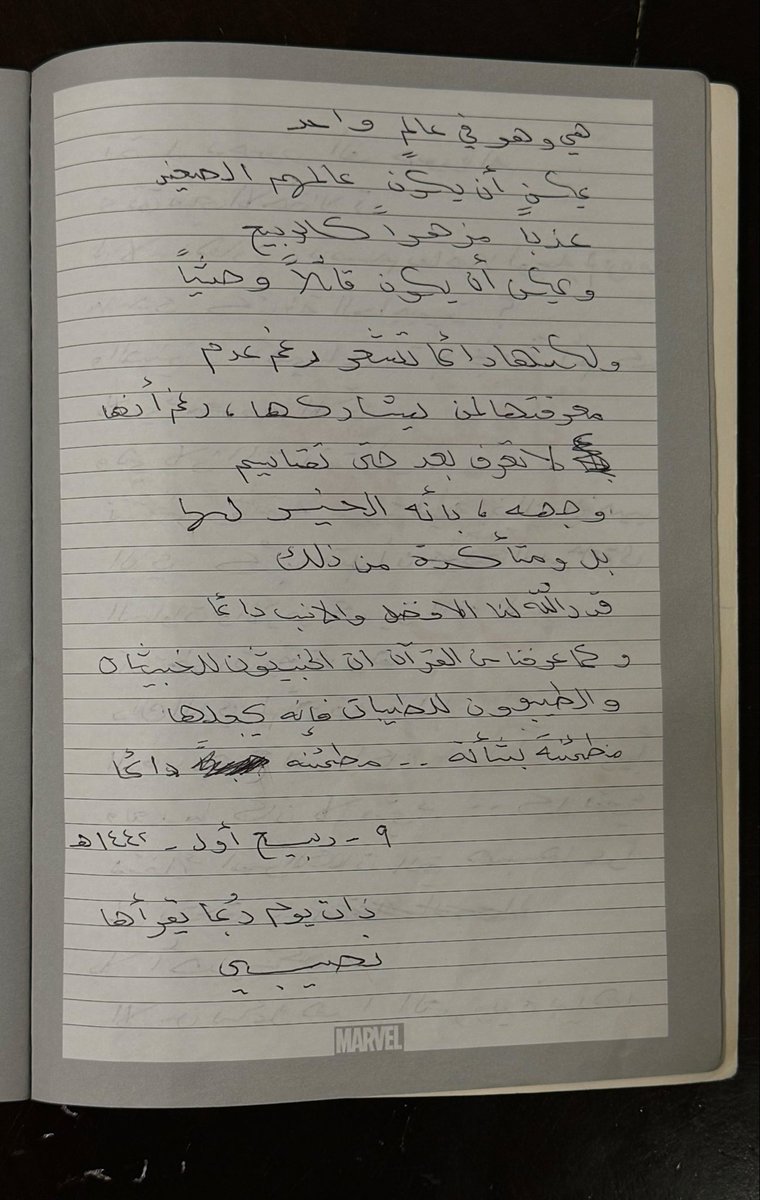 هي وهو في عالمٍ واحد
يمكن أن يكون عالمهم الصغير
عذباً مزهراً كالربيع
ويمكن أن يكون قاتلاً وحشياً
ولكنها دائما تشعر رغم عدم
معرفتها لمن يشاركها، رغم أنها
لا تعرف بعد حتى تقاسيم
وجهه، بأنه الخير لها
بل ومتأكدة من ذلك
قدر الله لنا الأفضل والأنسب دائما
وكما عرفنا من القرآن ان الخبيثون للخبيثات
والطيبون للطيبات فإنه يجعلها
مطمئنة بشأنه .. مطمئنه دائما
٩ - ربيع أول - ١٤٤٢هـ
ذات يوم ربما يقرأها
نصيبي
MARVEL